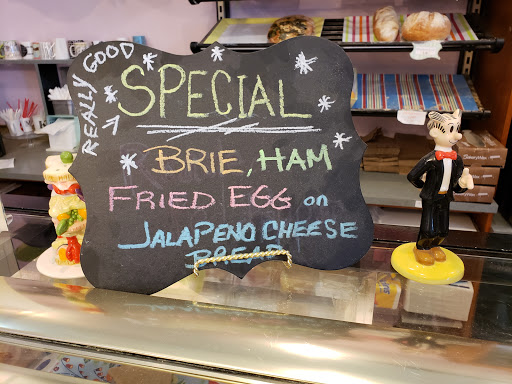 REALLY GOOD
SPECIAL
BRIE, HAM
FRIED EGG on
JALAPENO CHEESE
BREAD